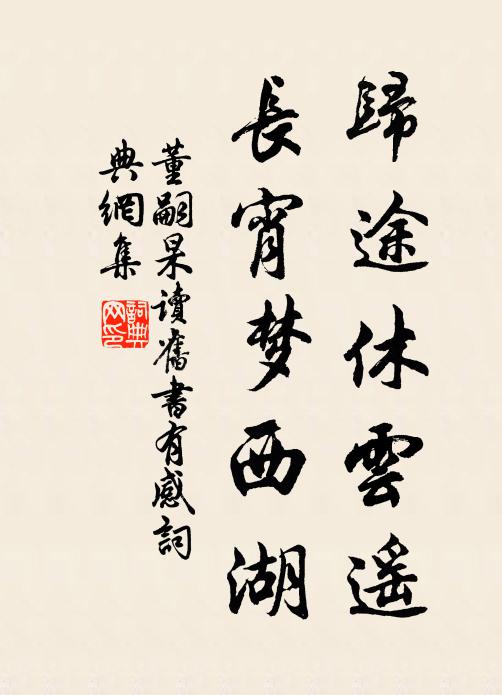 歸途休雲遥
長宵梦西湖
董嗣杲讀舊書有感詞
典網集
詞典
网印